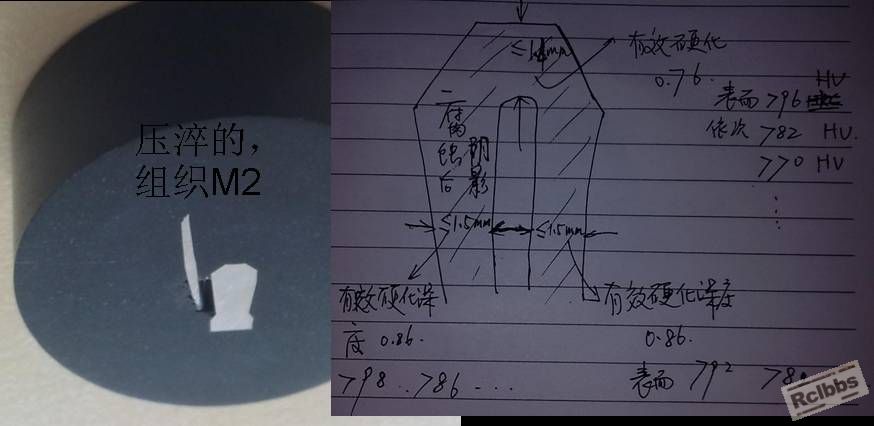 压淬的，
组织M2
有效硬化
0.76.
表面 796 HV
依次 782 HV.
770 HV
腐蚀后
的阴影
≤1.5mm
≤1.5mm
有效硬化深
度 0.86.
798 .. 786 ....
有效硬化深度
0.86.
表面 792
Rclbbs